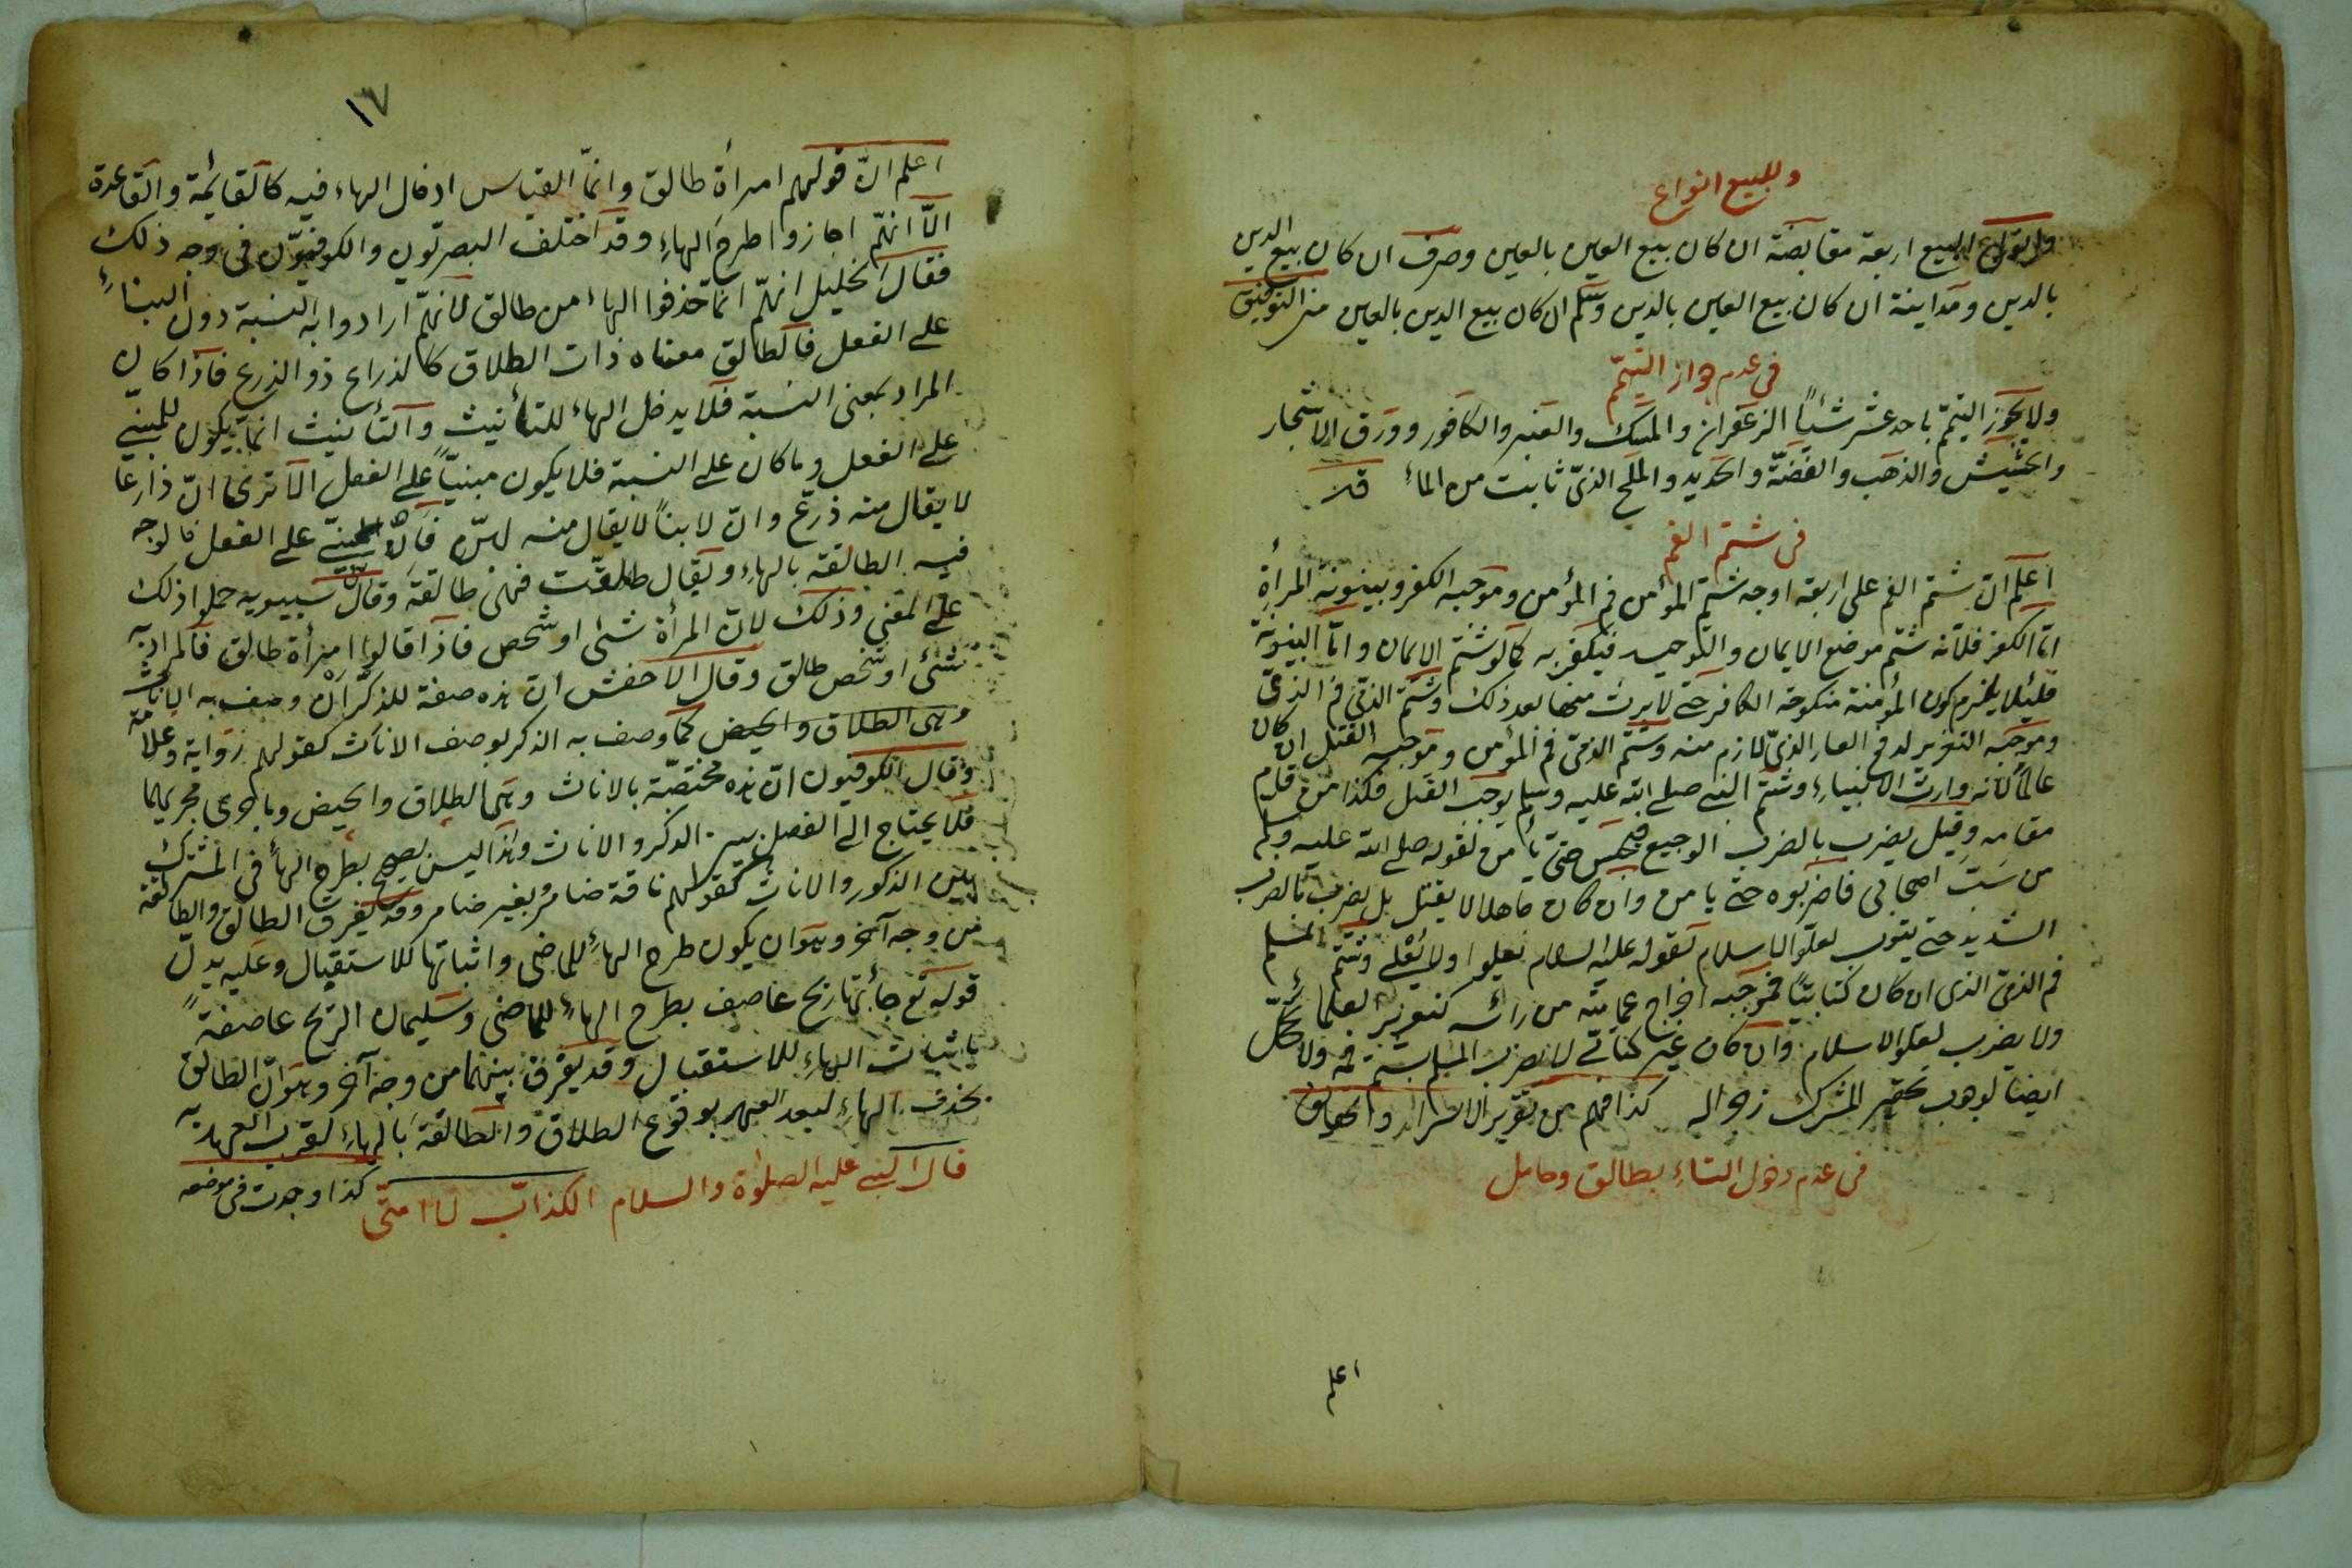 وللبيع انواع
وانواع البيع اربعة مقايضة ان كان بيع العين بالعين وصرف ان كان بيع الدين
بالدين ومداينة ان كان بيع العين بالدين وسلم ان كان بيع الدين بالعين من التوفيق
فى عدم جواز التيمّم
ولا يجوز التيمّم باحد عشر شيئاً الزعفران والمسك والعنبر والكافور وورق الاشجار
والحشيش والذهب والفضّة والحديد والملح الذىّ ثابت من الماء
فى شتم الفم
اعلم انّ شتم الفم على اربعة اوجه شتم المؤمن فم المؤمن وموجبه الكفر وبينونة المرأة
امّا الكفر فلانّه شتم موضع الايمان والتوحيد فيكفر به كما لو شتم الايمان وامّا البينونة
فلئلا يلزم كون المؤمنة منكوحة الكافر حتى لا يرث منها بعد ذلك وشتم الذمّى فم الذمىّ
وموجبه التعزير لدفع العار الذىّ لازم منه وشتم الذمىّ فم المؤمن وموجبه القتل ان كان
عالماً لانّه وارث الانبياء وشتم النبى صلى الله عليه وسلم يوجب القتل فكذا من قام
مقامه وقيل يضرب بالضرب الوجيع فيحبس حتى يأمن لقوله صلى الله عليه وسلم
من سبّ اصحابى فاضربوه حتى يامن وان كان جاهلا لا يقتل بل يضرب بالضرب
الشديد حتى يتوب لعلوّ الاسلام لقوله عليه السلام يعلوا ولا يُعْلى وشتم المسلم
فم الذمىّ الذى ان كان كتابيّاً فموجبه اخراج عمامته من رأسه كتعزير العلماء
ولا يضرب لعلو الاسلام وان كان غير كتابىّ لا يضرب المسلم بشتم فمه ولا
ايضا لوهب بحقر المشرك زواله كذا فهم من تقرير الاسرار والحقائق
فى عدم دخول التاء بطالق وحامل
اعلم
١٧
اعلم انّ قولهم امرأة طالق وانمّا القياس ادخال الهاء فيه كالقائمة والقاعدة
الّا انهّم اجازوا طرح الهاء وقد اختلف البصريّون والكوفيّون فى وجه ذلك
فقال الخليل انهّم انما حذفوا الهاء من طالق لانهّم ارادوا به النسبة دون البناء
على الفعل فالطالق معناه ذات الطلاق كالذراع ذو الذرع فاذا كان
المراد بمعنى النسبة فلا يدخل الهاء للتأنيث والتأنيث انما يكون للمبنىّ
على الفعل وما كان على النسبة فلا يكون مبنيّاً على الفعل الا ترى انّ ذارعا
لا يقال منه ذرع وانّ لابناً لا يقال منه لبن فامّا المبنىّ على الفعل فالوجه
فيه الطالقة بالهاء ويقال طلقت فهى طالقة وقال سيبويه حملوا ذلك
على المعنى وذلك لانّ المرأة شئ او شخص فاذا قالوا امرأة طالق فالمراد به
شئ او شخص طالق وقال الاخفش انّ هذه صفة للذكر ان وصف به الاناث
وهى الطلاق والحيض كما وصف به الذكر بوصف الاناث كقولهم رواية وعلامة
وقال الكوفيون انّ هذه مختصّة بالاناث وهى الطلاق والحيض وما جرى مجريهما
فلا يحتاج الى الفصل بين الذكر والاناث وهذا ليس يصحّ بطرح الهاء فى المشترك
بين الذكور والاناث كقولهم ناقة ضامر وبعير ضامر وقد يفرق الطالق والطالقة
من وجه آخر وهو ان يكون طرح الهاء للماضى واثباتها للاستقبال وعليه يدلّ
قوله تع جاءتها ريح عاصف بطرح الهاء للماضى وسليمان الريح عاصفةً
باثبات الهاء للاستقبال وقد يفرق بينهما من وجه آخر وهو انّ الطالق
بحذف الهاء لبعد العهد بوقوع الطلاق والطالقة بالهاء لقرب العهد به
قال النبى عليه الصلوة والسلام الكذاب لا امتّى كذا وجدت فى موضعه